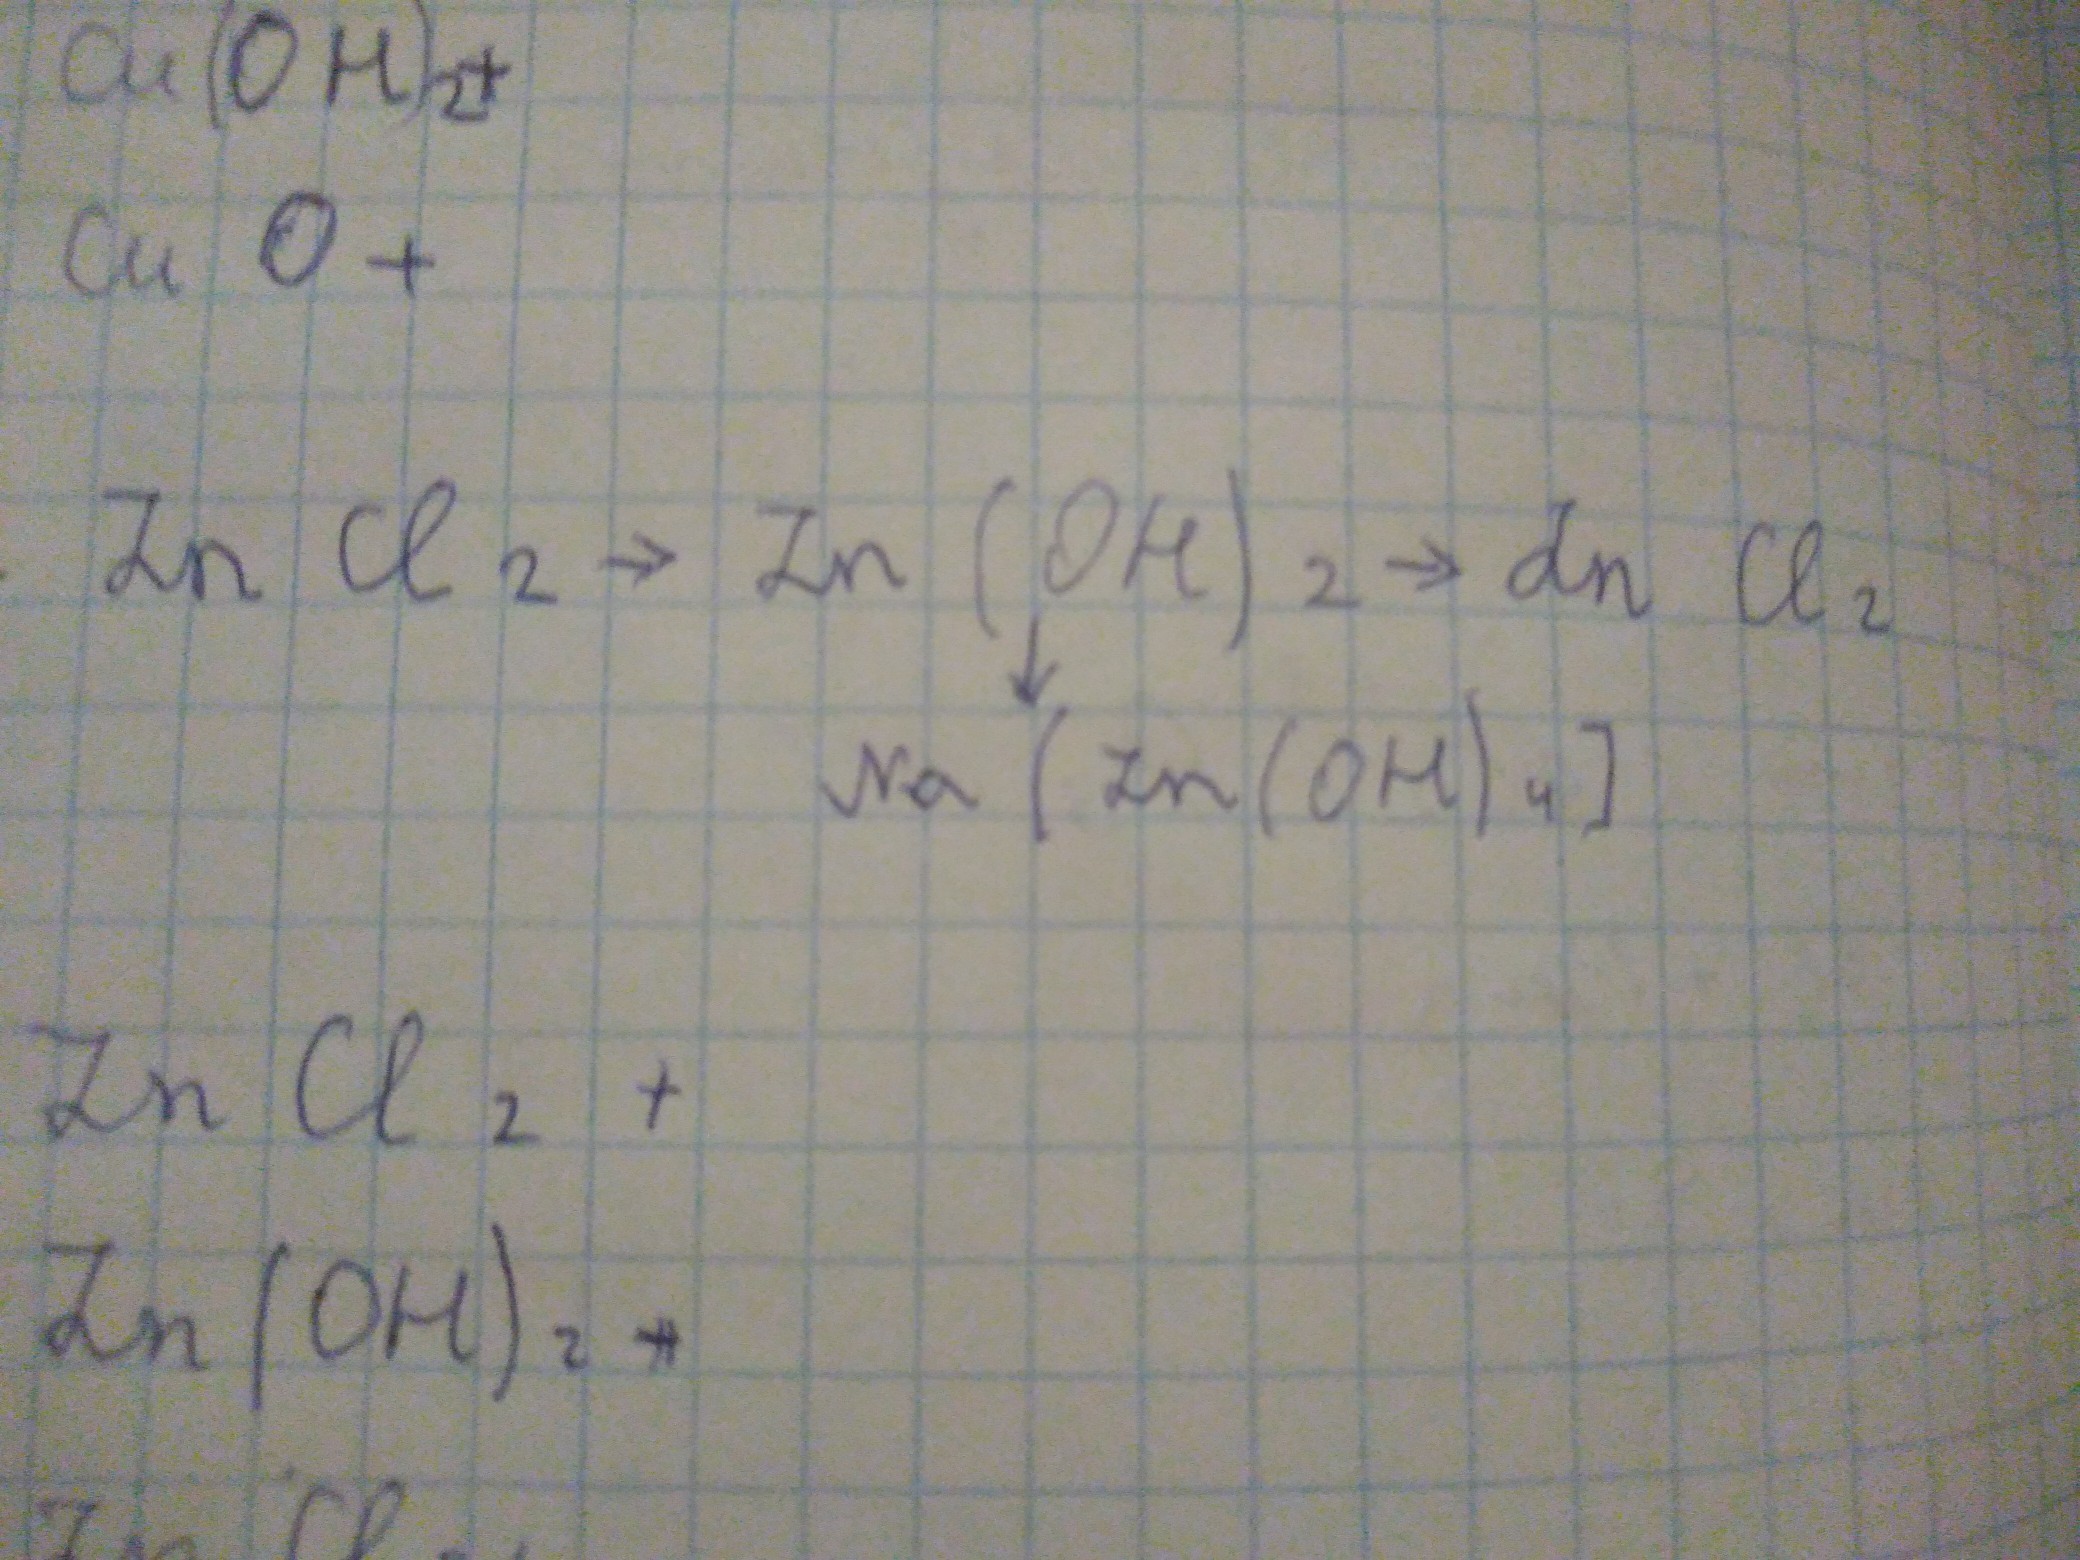 Cu(OH)2+
Cu O +
Zn Cl2 → Zn(OH)2 → Zn Cl2
↓
Na[Zn(OH)4]
Zn Cl2 +
Zn(OH)2 +
Zn Cl2